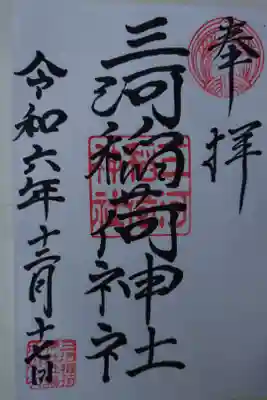 奉拝
三河稲荷神社
令和六年十二月十七日